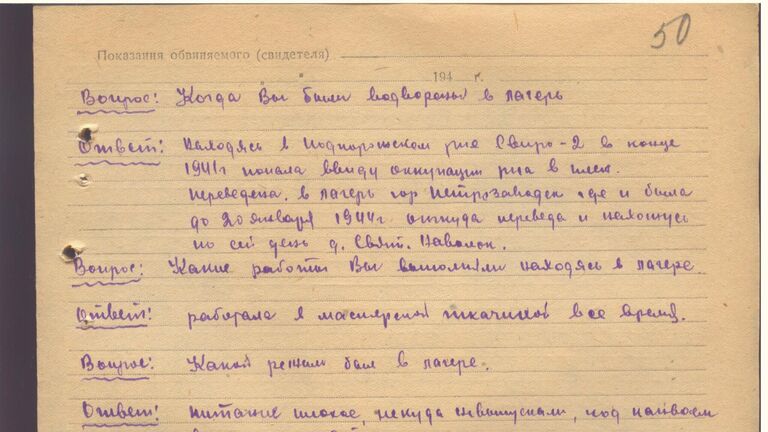 50
Показания обвиняемого (свидетеля)
194 г.
Вопрос: Когда Вы были водворены в лагерь
Ответ: Находясь в Подпорожском р-не Свирь-2 в конце
1941г попала ввиду оккупации р-на в плен.
Переведена в лагерь гор Петрозаводск где и была
до 20 января 1944г. откуда переведа и нахожусь
по сей день д. Свят. Наволок.
Вопрос: Какие работы Вы выполняли находясь в лагере.
Ответ: работала в мастерской ткачихой все время.
Вопрос: Какой режим был в лагере.
Ответ: питание плохое, некуда невыпускали, под